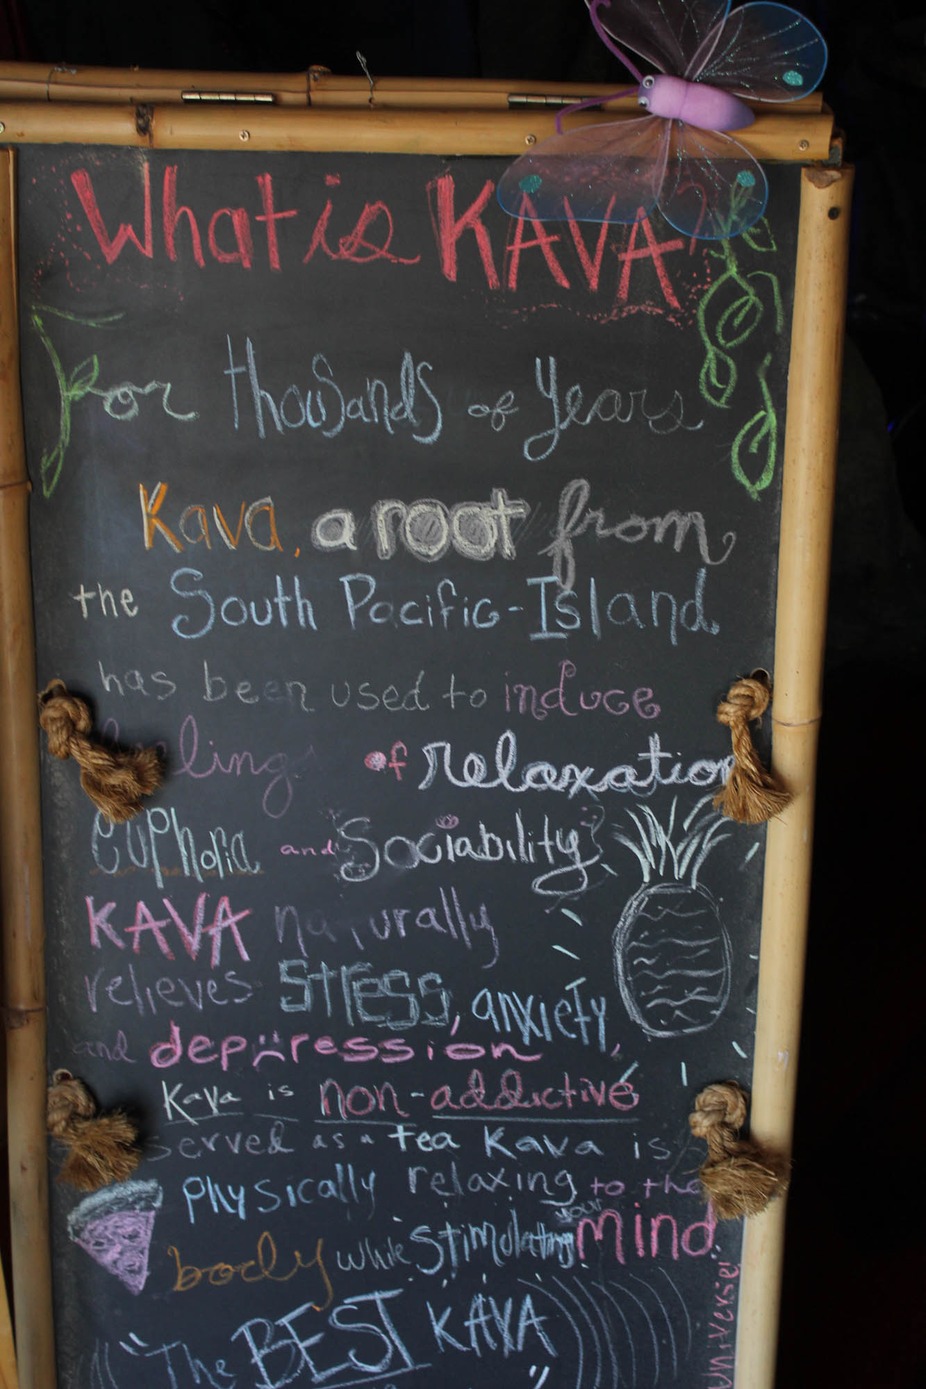 What is KAVA?
For thousands of years
Kava, a root from
the South Pacific-Island
has been used to induce
of relaxation
euphoria and Sociability
KAVA naturally
relieves STRESS, anxiety,
and depression
Kava is non-addictive
served as a tea Kava is
physically relaxing to the
body while stimulating your mind
"The BEST KAVA